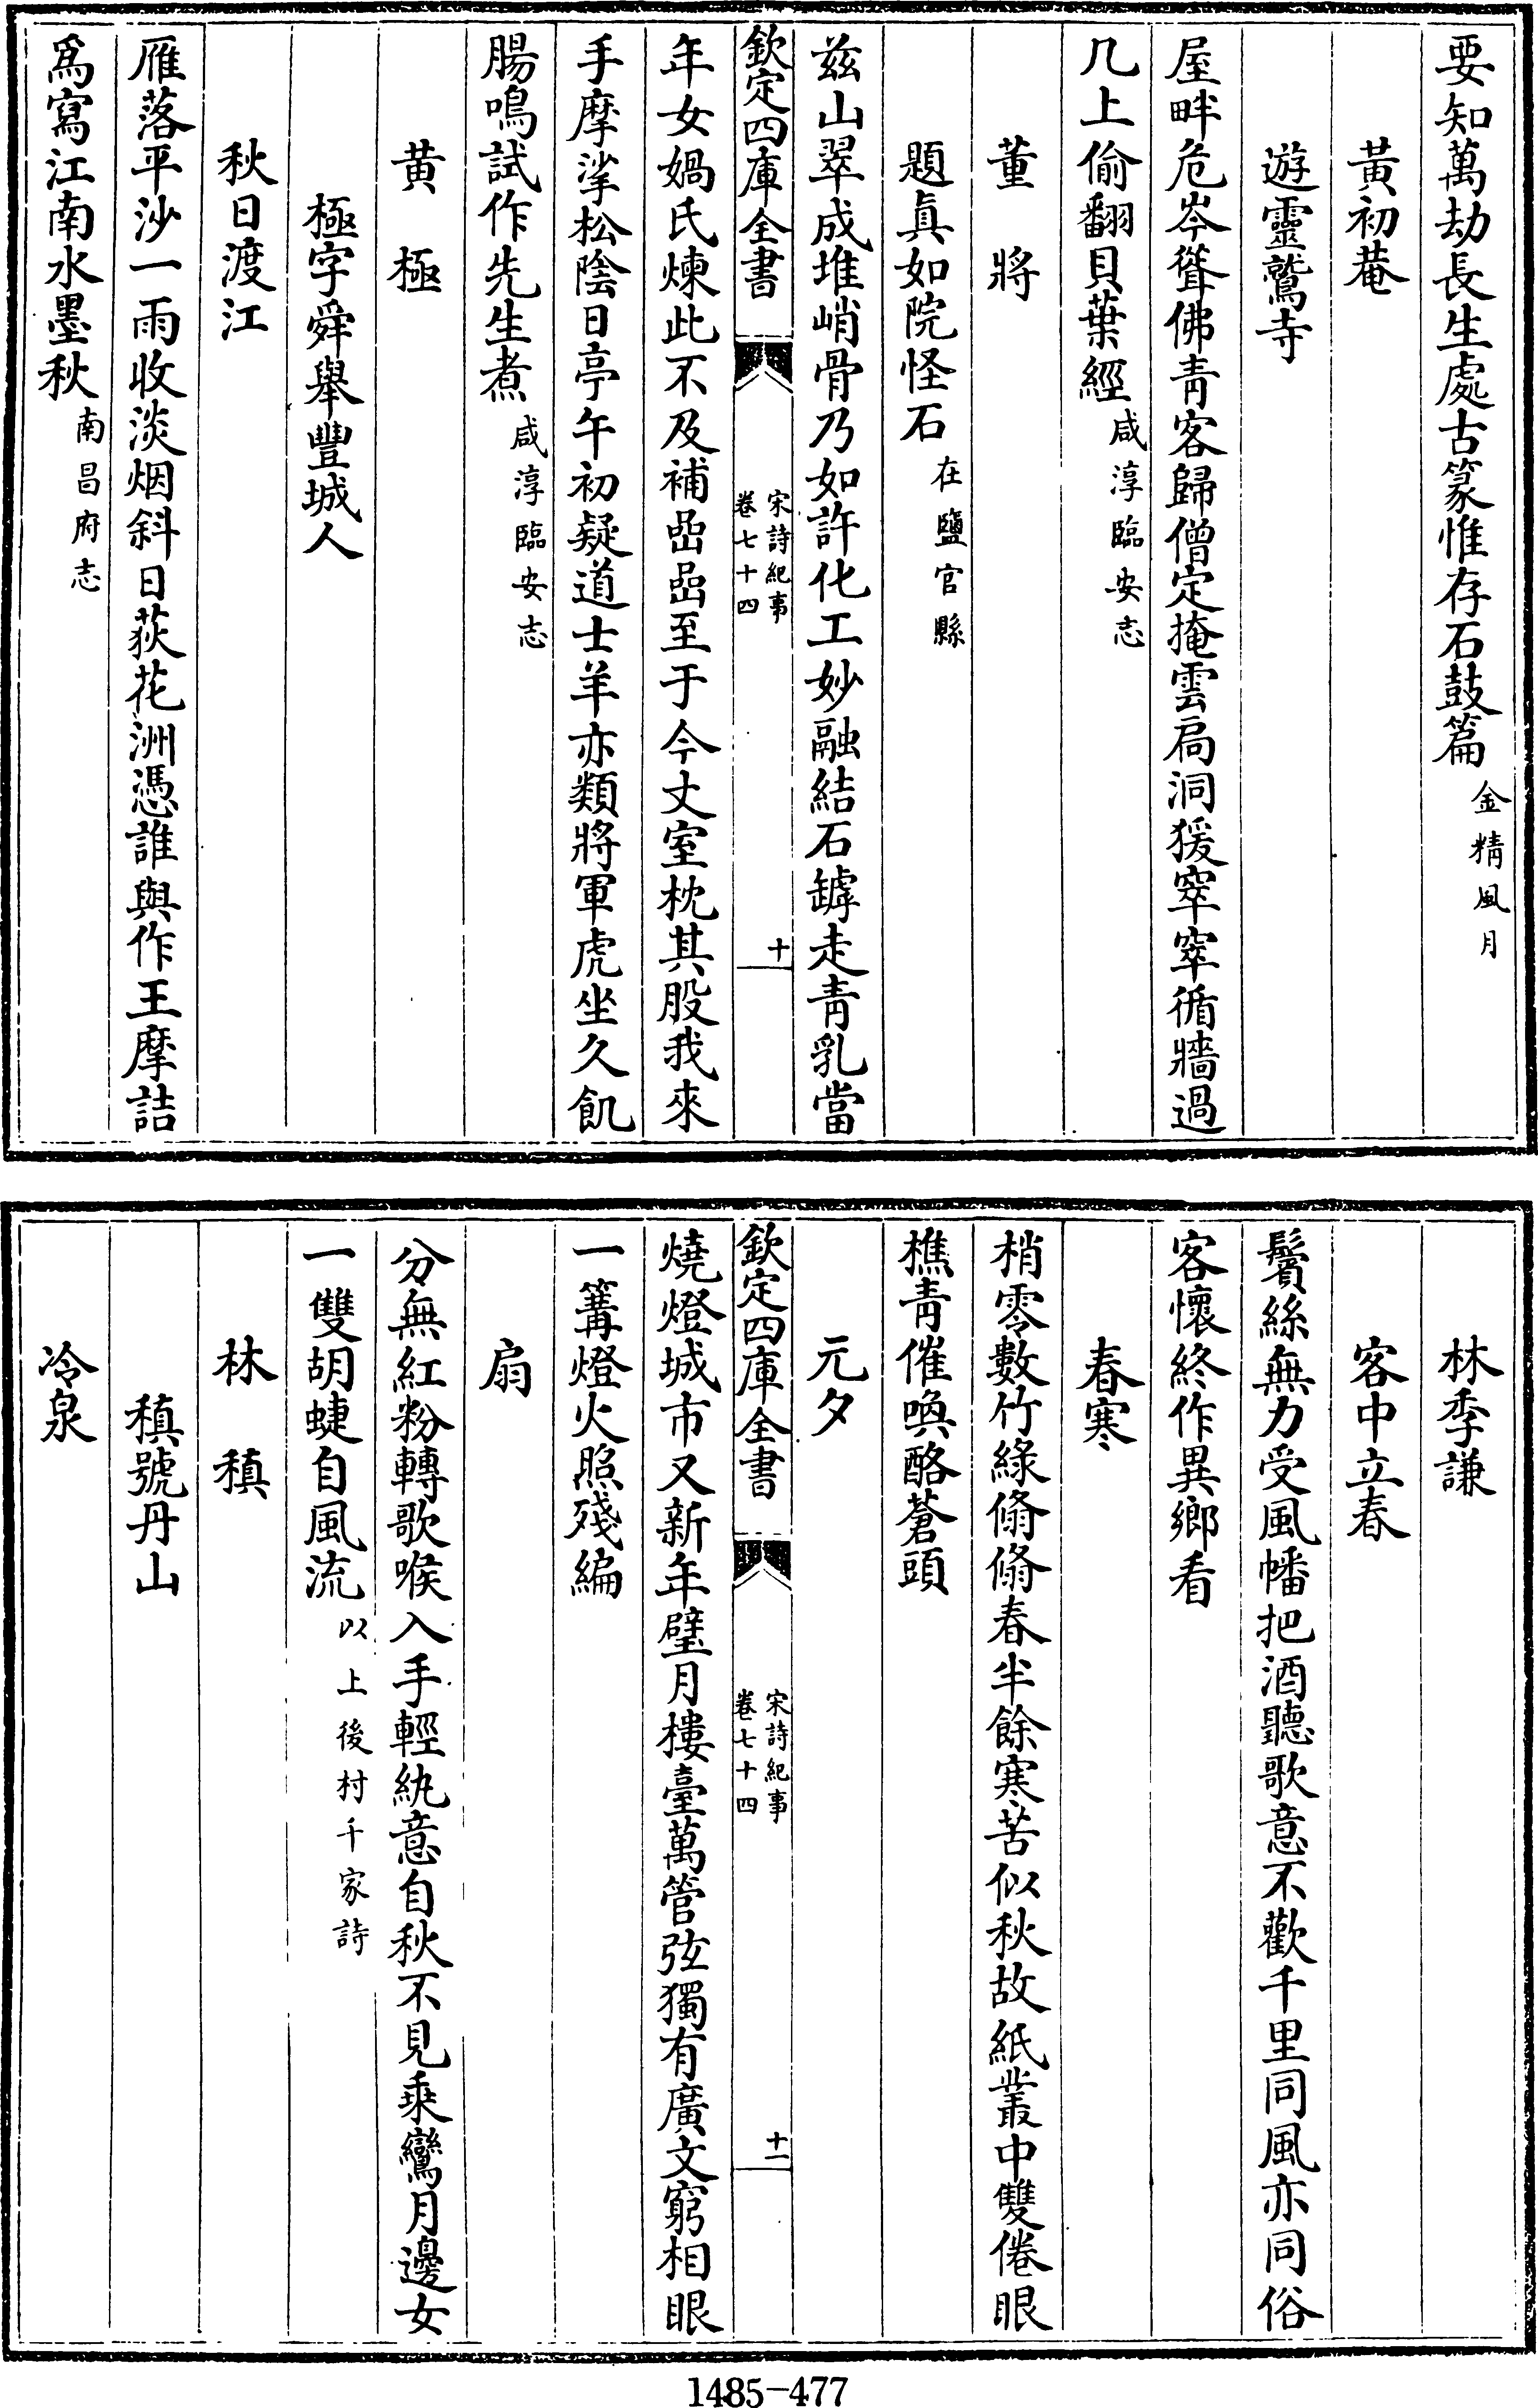 要知萬劫長生處古篆惟存石鼓篇金精風月
黃初菴
遊靈鷲寺
屋畔危岑聳佛青客歸僧定掩雲扃洞猨窣窣循牆過
几上偷翻貝葉經咸淳臨安志
董將
題眞如院怪石在鹽官縣
茲山翠成堆峭骨乃如許化工妙融結石罅走青乳當
欽定四庫全書
宋詩紀事
卷七十四
十
年女媧氏煉此不及補嵒嵒至于今丈室枕其股我來
手摩挲松陰日亭午初疑道士羊亦類將軍虎坐久飢
腸鳴試作先生煮咸淳臨安志
黃極
極字舜舉豐城人
秋日渡江
雁落平沙一雨收淡烟斜日荻花洲憑誰與作王摩詰
爲寫江南水墨秋南昌府志
林季謙
客中立春
鬢絲無力受風幡把酒聽歌意不歡千里同風亦同俗
客懷終作異鄉看
春寒
梢零數竹綠翛翛春半餘寒苦似秋故紙叢中雙倦眼
樵青催喚酪蒼頭
元夕
欽定四庫全書
宋詩紀事
卷七十四
十一
燒燈城市又新年璧月樓臺萬管弦獨有廣文窮相眼
一篝燈火照殘編
扇
分無紅粉轉歌喉入手輕紈意自秋不見乘鸞月邊女
一雙胡蜨自風流以上後村千家詩
林稹
稹號丹山
冷泉
1485-477